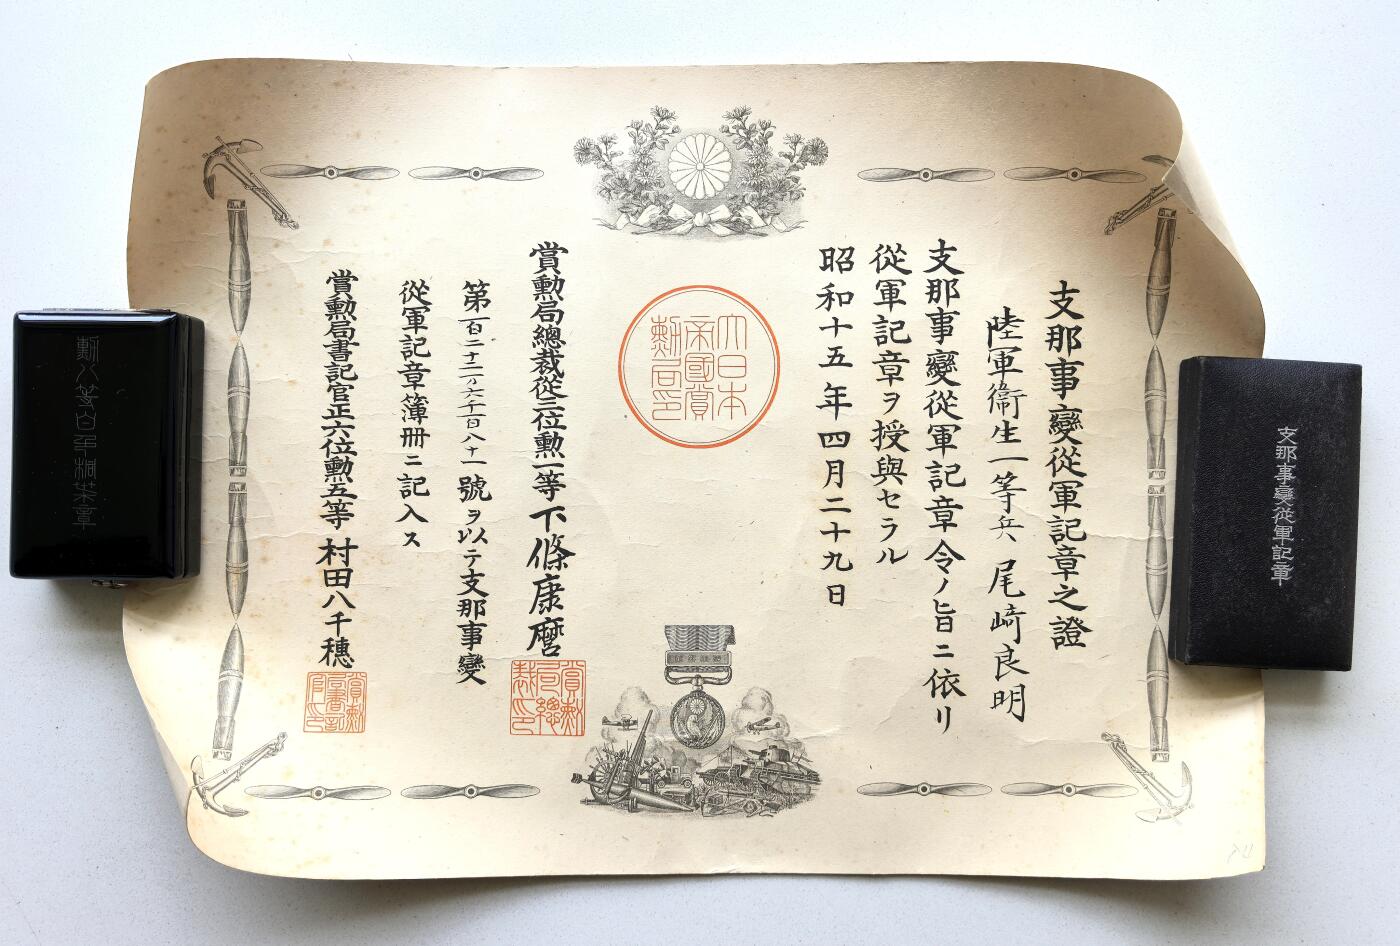 支那事變從軍記章之證
陸軍衞生一等兵 尾﨑良明
支那事變從軍記章令ノ旨ニ依リ
從軍記章ヲ授與セラル
昭和十五年四月二十九日
大日本
帝國賞
勲局印
賞勲局總裁從三位勲一等下條康麿
賞勲
局總
裁印
第一百二十二万六千百八十一號ヲ以テ支那事變
從軍記章簿冊ニ記入ス
賞勲局書記官正六位勲五等村田八千穗
賞勲
局書記
官印
勲八等白色桐葉章
支那事變從軍記章